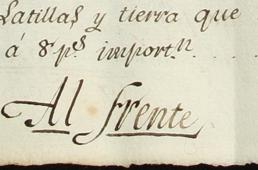 Latillas y tierra que
á 8 p.s import.n . . . .
Al frente